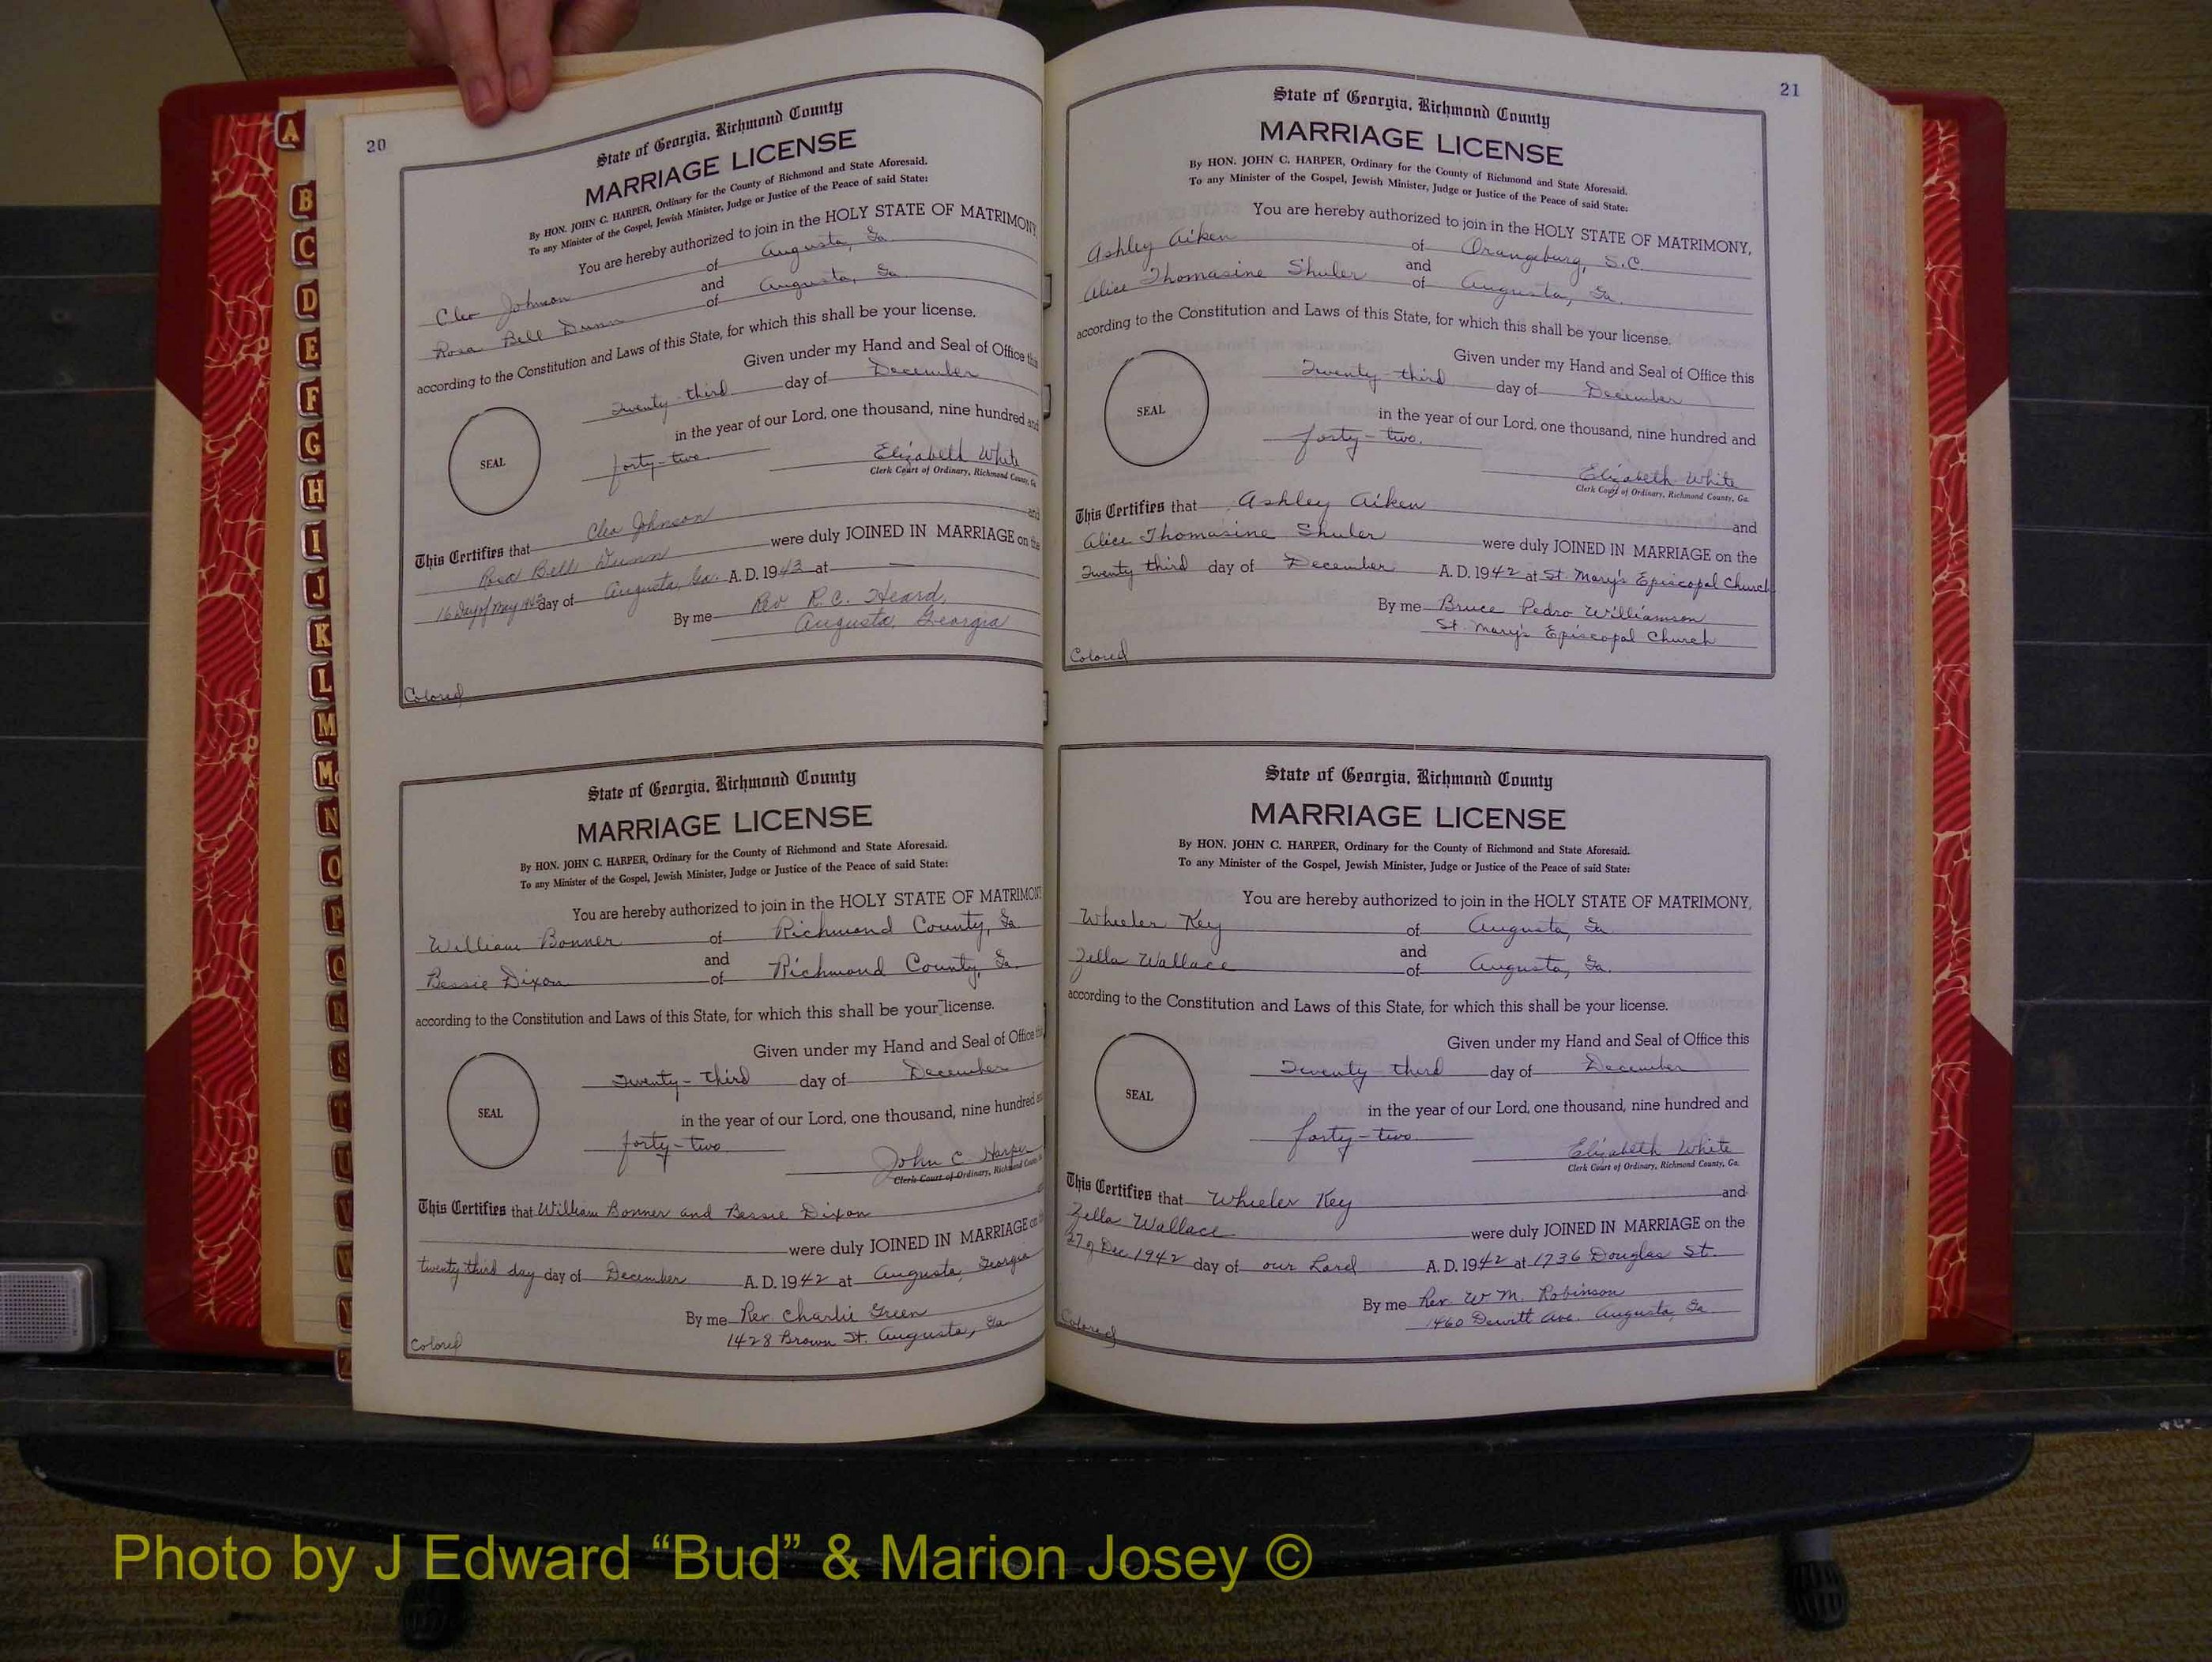 20
State of Georgia, Richmond County
MARRIAGE LICENSE
By HON. JOHN C. HARPER, Ordinary for the County of Richmond and State Aforesaid.
To any Minister of the Gospel, Jewish Minister, Judge or Justice of the Peace of said State:
You are hereby authorized to join in the HOLY STATE OF MATRIMONY,
Cleo Johnson of Augusta, Ga.
and
Rosa Bell Dunn of Augusta, Ga.
according to the Constitution and Laws of this State, for which this shall be your license.
Given under my Hand and Seal of Office this
Twenty-third day of December
in the year of our Lord, one thousand, nine hundred and
SEAL
forty-two
Elizabeth White
Clerk Court of Ordinary, Richmond County, Ga
This Certifies that Cleo Johnson and
Rosa Bell Dunn were duly JOINED IN MARRIAGE on the
16 Day of May 1943 day of Augusta, Ga. A. D. 1943 at —
By me Rev. R. C. Heard,
Augusta, Georgia
Colored
State of Georgia, Richmond County
MARRIAGE LICENSE
By HON. JOHN C. HARPER, Ordinary for the County of Richmond and State Aforesaid.
To any Minister of the Gospel, Jewish Minister, Judge or Justice of the Peace of said State:
You are hereby authorized to join in the HOLY STATE OF MATRIMONY
William Bonner of Richmond County, Ga
and
Bessie Dixon of Richmond County, Ga.
according to the Constitution and Laws of this State, for which this shall be your license.
Given under my Hand and Seal of Office this
Twenty-third day of December
in the year of our Lord, one thousand, nine hundred and
SEAL
forty-two
John C. Harper
Clerk Court of Ordinary, Richmond County
This Certifies that William Bonner and Bessie Dixon
were duly JOINED IN MARRIAGE on
twenty third day day of December A. D. 1942 at Augusta, Georgia
By me Rev. Charlie Green
1428 Brown St. Augusta, Ga
Colored
21
State of Georgia, Richmond County
MARRIAGE LICENSE
By HON. JOHN C. HARPER, Ordinary for the County of Richmond and State Aforesaid.
To any Minister of the Gospel, Jewish Minister, Judge or Justice of the Peace of said State:
You are hereby authorized to join in the HOLY STATE OF MATRIMONY,
Ashley Aiken of Orangeburg, S.C.
and
Alice Thomasine Shuler of Augusta, Ga.
according to the Constitution and Laws of this State, for which this shall be your license.
Given under my Hand and Seal of Office this
Twenty third day of December
in the year of our Lord, one thousand, nine hundred and
SEAL
forty-two.
Elizabeth White
Clerk Court of Ordinary, Richmond County, Ga.
This Certifies that Ashley Aiken and
Alice Thomasine Shuler were duly JOINED IN MARRIAGE on the
Twenty third day of December A. D. 1942 at St. Mary's Episcopal Church
By me Bruce Pedro Williamson
St. Mary's Episcopal Church
Colored
State of Georgia, Richmond County
MARRIAGE LICENSE
By HON. JOHN C. HARPER, Ordinary for the County of Richmond and State Aforesaid.
To any Minister of the Gospel, Jewish Minister, Judge or Justice of the Peace of said State:
You are hereby authorized to join in the HOLY STATE OF MATRIMONY,
Wheeler Key of Augusta, Ga.
and
Zella Wallace of Augusta, Ga.
according to the Constitution and Laws of this State, for which this shall be your license.
Given under my Hand and Seal of Office this
Twenty third day of December
in the year of our Lord, one thousand, nine hundred and
SEAL
forty-two
Elizabeth White
Clerk Court of Ordinary, Richmond County, Ga.
This Certifies that Wheeler Key and
Zella Wallace were duly JOINED IN MARRIAGE on the
27 of Dec 1942 day of our Lord A. D. 1942 at 1736 Douglas St.
By me Rev. W. M. Robinson
1460 Dewitt Ave. Augusta, Ga
Colored
A
B
C
D
E
F
G
H
I
J
K
L
M
Mc
N
O
P
Q
R
S
T
U
V
W
Y
Z
Photo by J Edward “Bud” & Marion Josey ©